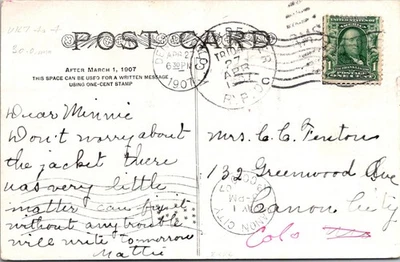 POST CARD
AFTER MARCH 1, 1907
THIS SPACE CAN BE USED FOR A WRITTEN MESSAGE
USING ONE-CENT STAMP
APR 27
6 30 PM
1907
TRINIDAD
APR
R.P.O.
Dear Minnie
Don't worry about
the jacket there
was very little
matter can fix it
without any trouble
will write tomorrow
Mattie
Mrs. C. C. Fentons
132 Greenwood Ave
Canon City
Colo
CANON CITY
PM